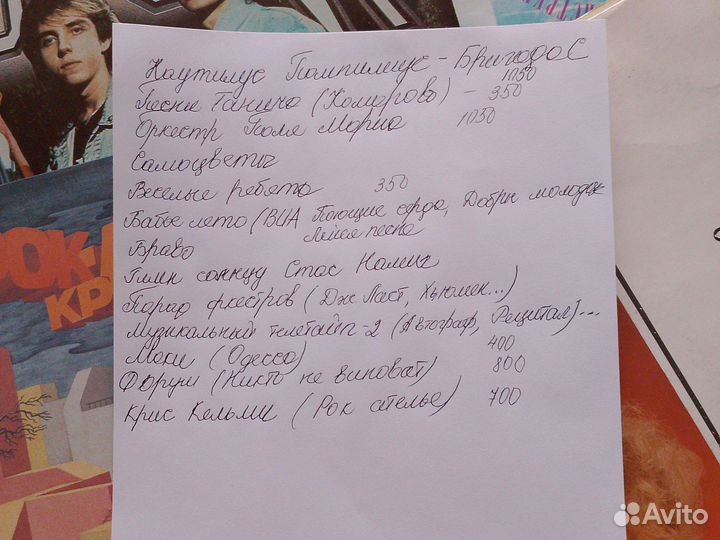 Наутилус Помпилиус - Бригада С
1050
Песни Танича (Комарово) - 350
Оркестр Поля Мориа 1050
Самоцветы
Веселые ребята 350
Бабье лето (ВИА Поющие сердца, Добры молодцы
Лейся песня
Браво
Гимн солнцу Стас Намин
Парад оркестров (Дж Ласт, Хьюмен...)
Музикальный телетайп-2 (Автограф, Рецитал)...
Маки (Одесса) 400
Форум (Никто не виноват) 800
Крис Кельми (Рок ателье) 700
РОК-
КР
Avito